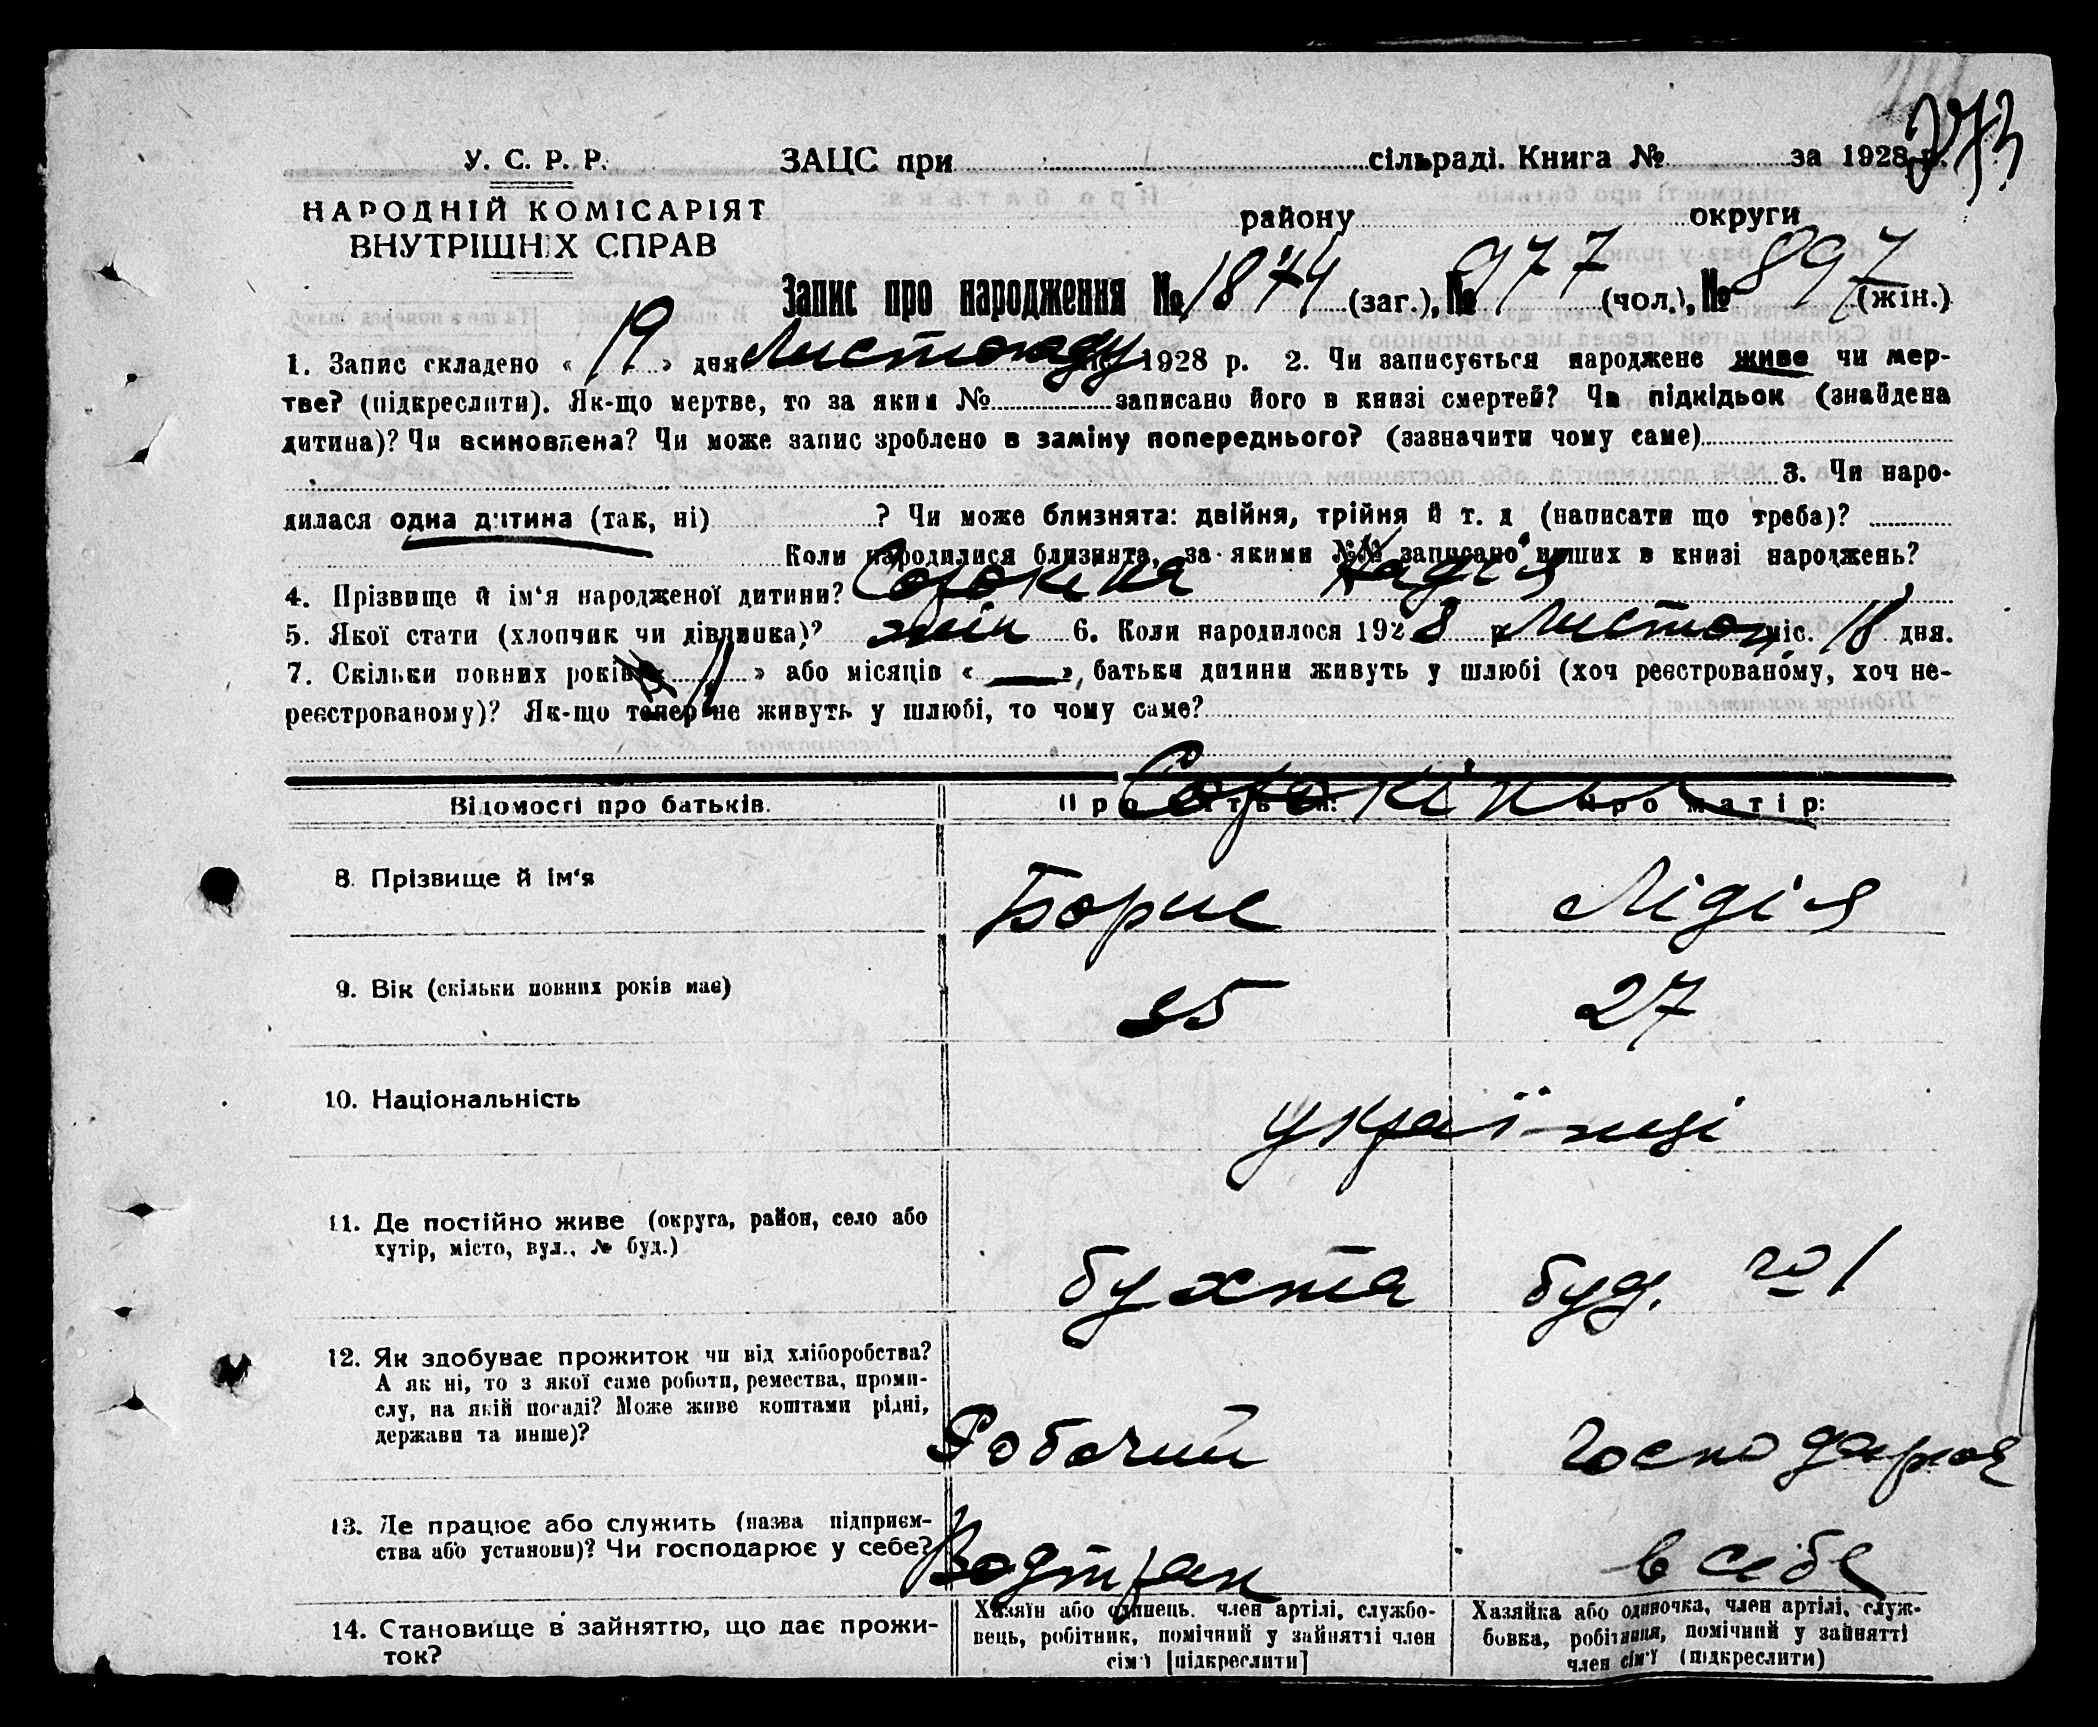 273
У. С. Р. Р. ЗАЦС при сільраді. Книга № за 1928 р.
НАРОДНІЙ КОМІСАРІЯТ району округи
ВНУТРІШНІХ СПРАВ
Запис про народження № 1874 (заг.), № 977 (чол.), № 897 (жін.)
1. Запис складено « 19 » дня Листопаду 1928 р. 2. Чи записується народжене живе чи мер-
тве? (підкреслити). Як-що мертве, то за яким № записано його в книзі смертей? Чи підкідьок (знайдена
дитина)? Чи всиновлена? Чи може запис зроблено в заміну попереднього? (зазначити чому саме)
3. Чи наро-
дилася одна дитина (так, ні) ? Чи може близнята: двійня, трійня й т. д (написати що треба)?
Коли народилися близнята, за якими №№ записано инших в книзі народжень?
4. Прізвище й ім'я народженої дитини? Сорокіна Надія
5. Якої стати (хлопчик чи дівчинка)? жін 6. Коли народилося 1928 р Листоп. міс. 18 дня.
7. Скільки повних років « » або місяців « — », батьки дитини живуть у шлюбі (хоч реєстрованому, хоч не-
реєстрованому)? Як-що тепер не живуть у шлюбі, то чому саме?
Сорокіни
Відомості про батьків. Про батька: Про матір:
8. Прізвище й ім'я Борис Лідія
9. Вік (скільки повних років має) 25 27
10. Національність українці
11. Де постійно живе (округа, район, село або
хутір, місто, вул., № буд.) бухта буд. № 1
12. Як здобуває прожиток чи від хліборобства?
А як ні, то з якої саме роботи, ремества, проми-
слу, на якій посаді? Може живе коштами рідні,
держави та инше)? Робочий господарює
13. Де працює або служить (назва підприєм-
ства або установи)? Чи господарює у себе? Водтран в себе
14. Становище в зайняттю, що дає прожи-
ток?
Хазяїн або одинець. член артілі, службо-
вець, робітник, помічний у зайнятті член
сім'ї [підкреслити]
Хазяйка або одиночка, член артілі, служ-
бовка, робітниця, помічний у зайнятті
член сім'ї (підкреслити)